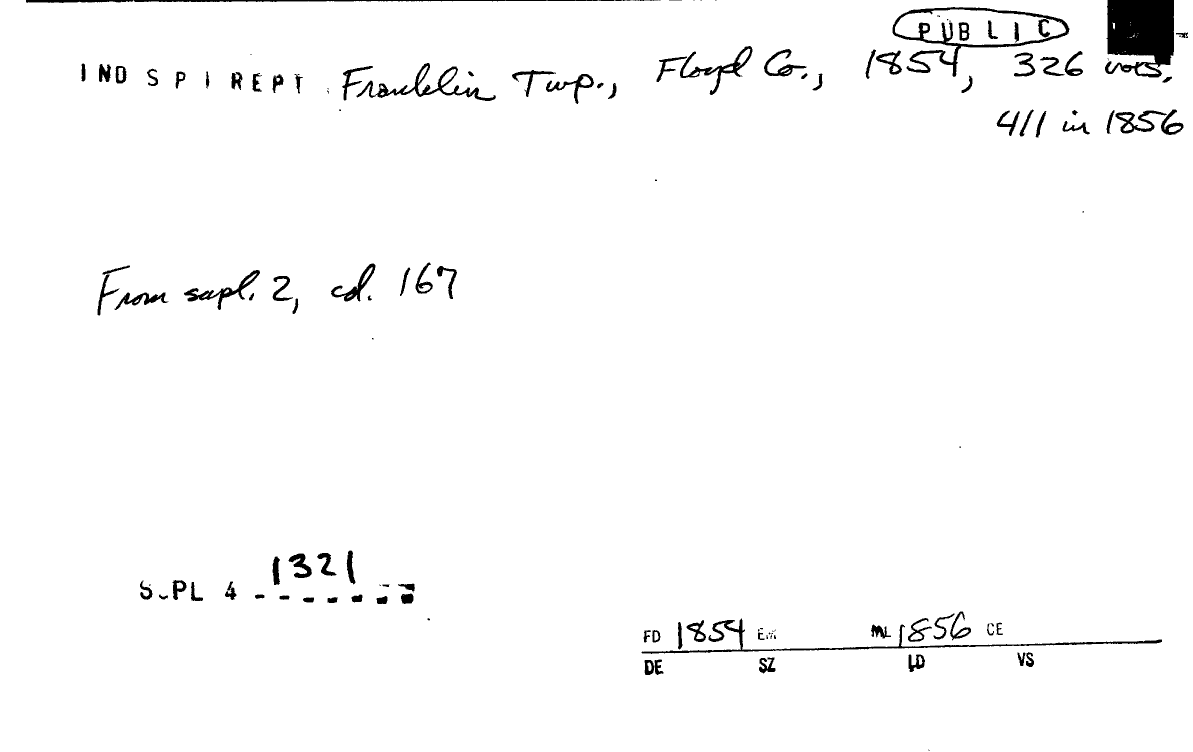 PUBLIC
IND SPI REPT Franklin Twp., Floyd Co., 1854, 326 vols,
411 in 1856
From supl. 2, cd. 167
SUPL 4 1321
FD 1854 EM ML 1856 CE
DE SZ LD VS